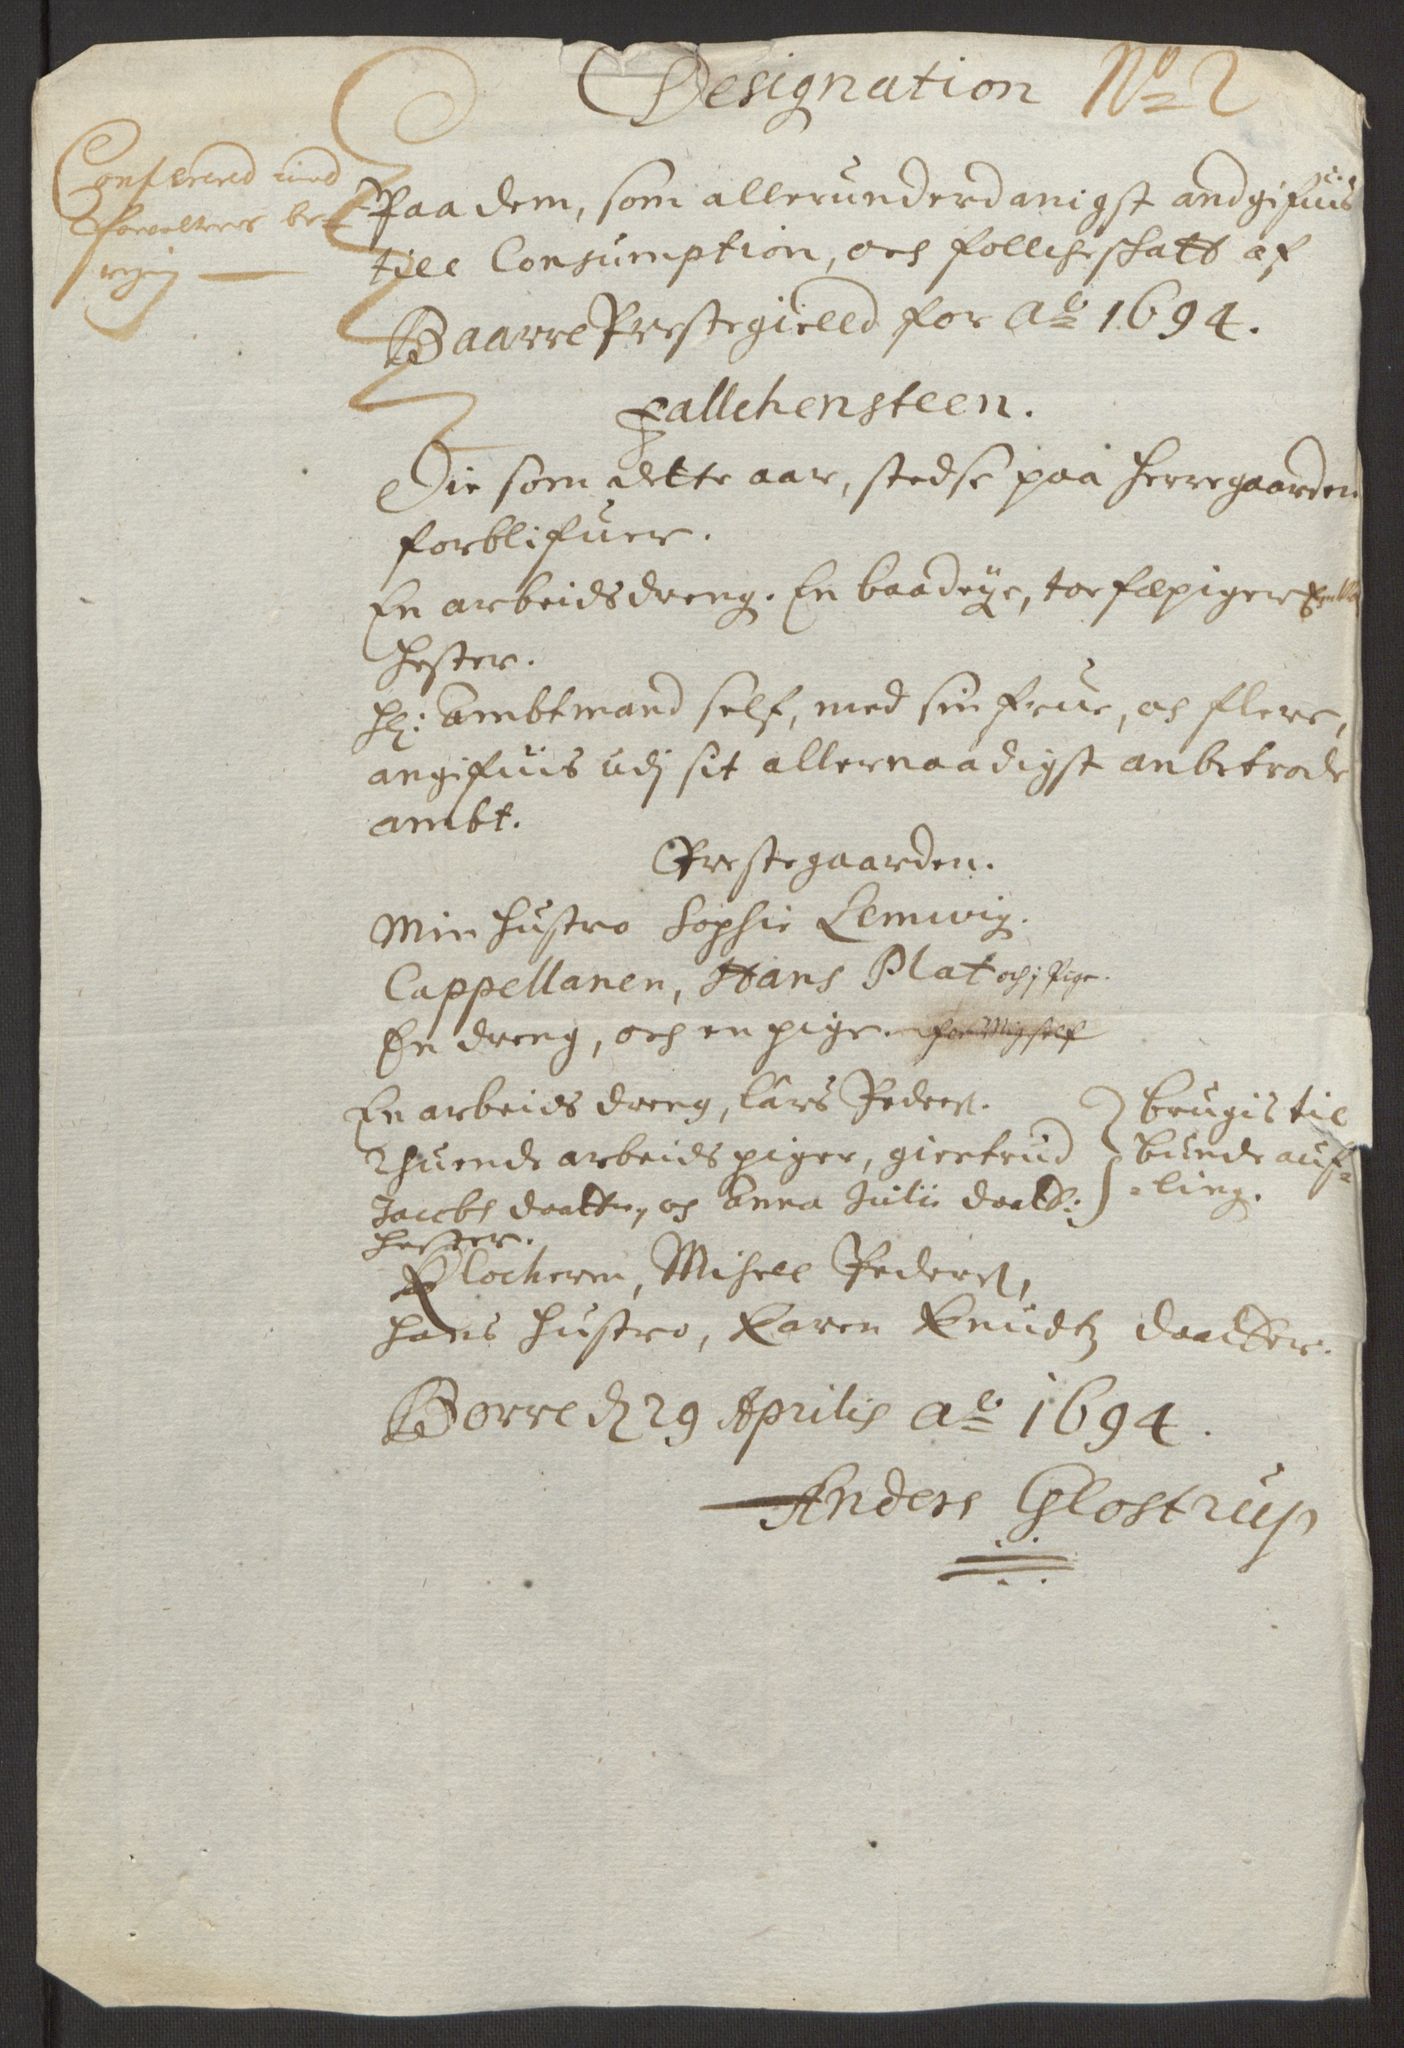 Designation No 2
Confererid med
forvalters be-
regn
Paa dem, som allerunderdanigst andgifuis
till Consumption, och follcheskatt af
Baarre Prestegielld for Ao 1694.
Fallchensteen.
Die som dette aar, stedse paa herregaarden
forblifuer.
En arbeidsdreng. En baadeye, toe fæpiger
hester.
Hr: Ambtmand self, med sin frue, oc flere,
angifuis udj sit allernaadigst anbetrode
ambt.
Prestegaarden.
Min hustro Sophie Lemwig.
Cappellanen, Hans Plat och j Pige.
En dreng, och en pige. for Mig self
En arbeids dreng, Lars Peders. brugis til
Thuende arbeids piger, giertrud bunde auf-
Jacobs daatter, oc Anna Julii daatt: -ling.
hester.
Klocheren, Mihell Peders,
hans hustro, Karen Knudtz daatter.
Borre d 29 Aprilis Ao 1694.
Anders Glostrup